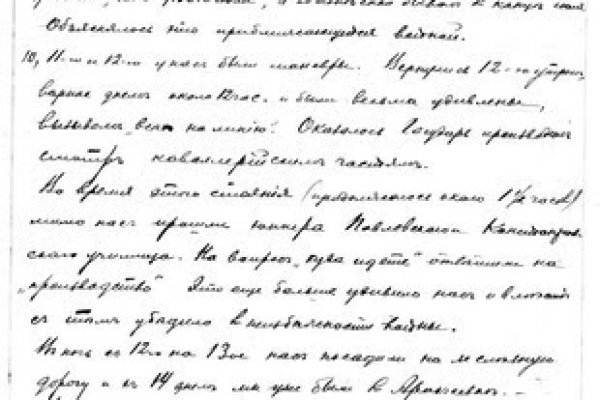 Объяснялось это приближающейся войной.
10, 11-го и 12-го у нас были маневры. Вернулись 12-го утром,
вернее днем около 12 час. и были весьма удивлены,
вызовом „всех на линию". Оказалось Государь производил
смотръ кавалерийскимъ частямъ.
Во время этого стояния (продолжалось около 1½ часов)
мимо насъ прошли юнкера Павловского
ского училища. На вопросъ „куда идете" отвѣтили на
„производство" Это еще больше удивило насъ и
съ тѣмъ убѣдило в неизбѣжности войны.
Въ ночь съ 12го на 13ое насъ посадили на железную
дорогу и къ 14 днемъ мы уже были в